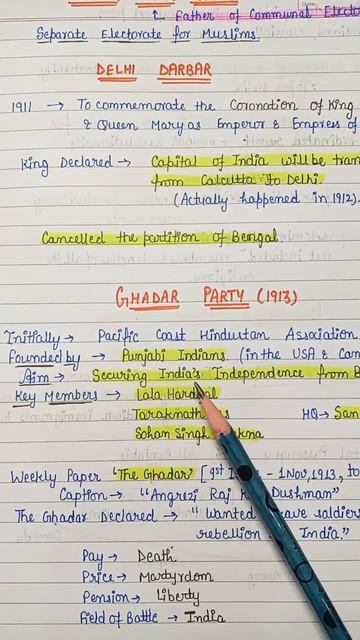 ↳ Father of Communal Electo
Separate Electorate for Muslims.
DELHI DARBAR
1911 → To commemorate the Coronation of King
& Queen Mary as Emperor & Empress of
King Declared → Capital of India will be tran
from Calcutta to Delhi
(Actually happened in 1912).
Cancelled the partition of Bengal
GHADAR PARTY (1913)
Initially → Pacific Coast Hindustan Association
Founded by → Punjabi Indians. (in the USA & Can
Aim → Securing India's Independence from B
Key Members → Lala Hardayal
Taraknath HQ → San
Sohan Singh
Weekly Paper 'The Ghadar' [1st - 1 Nov, 1913, to
Caption → "Angrezi Raj Dushman"
The Ghadar Declared → "Wanted soldier
rebellion India."
Pay → Death
Price → Martyrdom
Pension → Liberty
Field of Battle → India